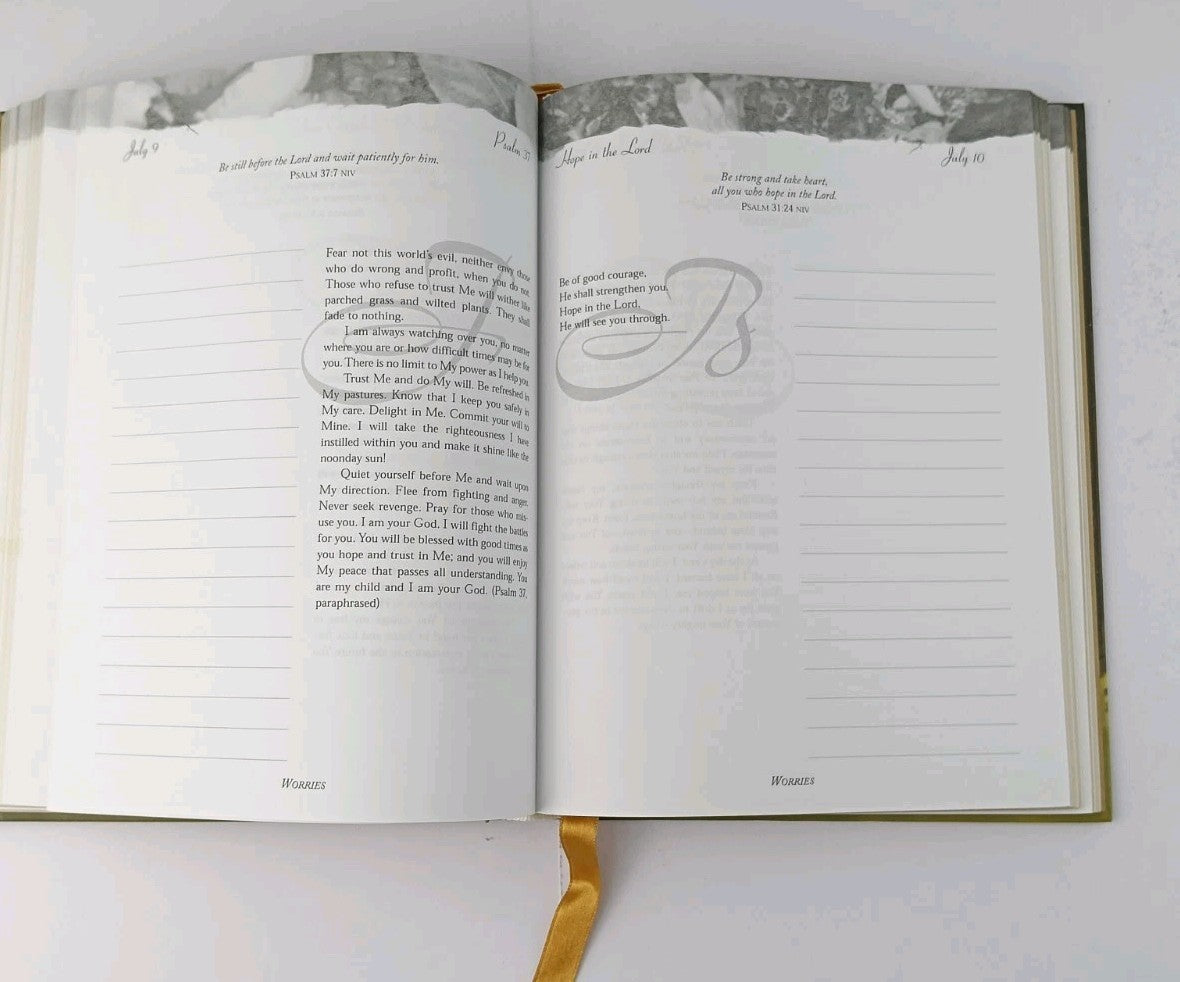 July 9
Psalm 37
Be still before the Lord and wait patiently for him.
PSALM 37:7 NIV
Fear not this world's evil, neither envy those
who do wrong and profit, when you do not.
Those who refuse to trust Me will wither like
parched grass and wilted plants. They shall
fade to nothing.
I am always watching over you, no matter
where you are or how difficult times may be for
you. There is no limit to My power as I help you.
Trust Me and do My will. Be refreshed in
My pastures. Know that I keep you safely in
My care. Delight in Me. Commit your will to
Mine. I will take the righteousness I have
instilled within you and make it shine like the
noonday sun!
Quiet yourself before Me and wait upon
My direction. Flee from fighting and anger.
Never seek revenge. Pray for those who mis-
use you. I am your God. I will fight the battles
for you. You will be blessed with good times as
you hope and trust in Me; and you will enjoy
My peace that passes all understanding. You
are my child and I am your God. (Psalm 37,
paraphrased)
WORRIES
Hope in the Lord
July 10
Be strong and take heart,
all you who hope in the Lord.
PSALM 31:24 NIV
B
Be of good courage,
He shall strengthen you.
Hope in the Lord,
He will see you through.
WORRIES